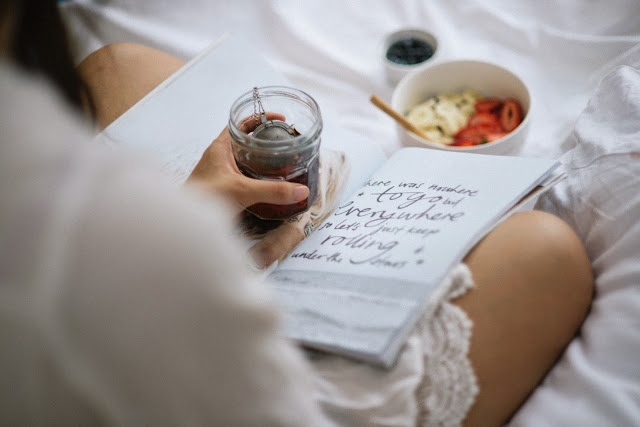 here was nowhere
to go but
everywhere
so lets just keep
rolling
under the stars